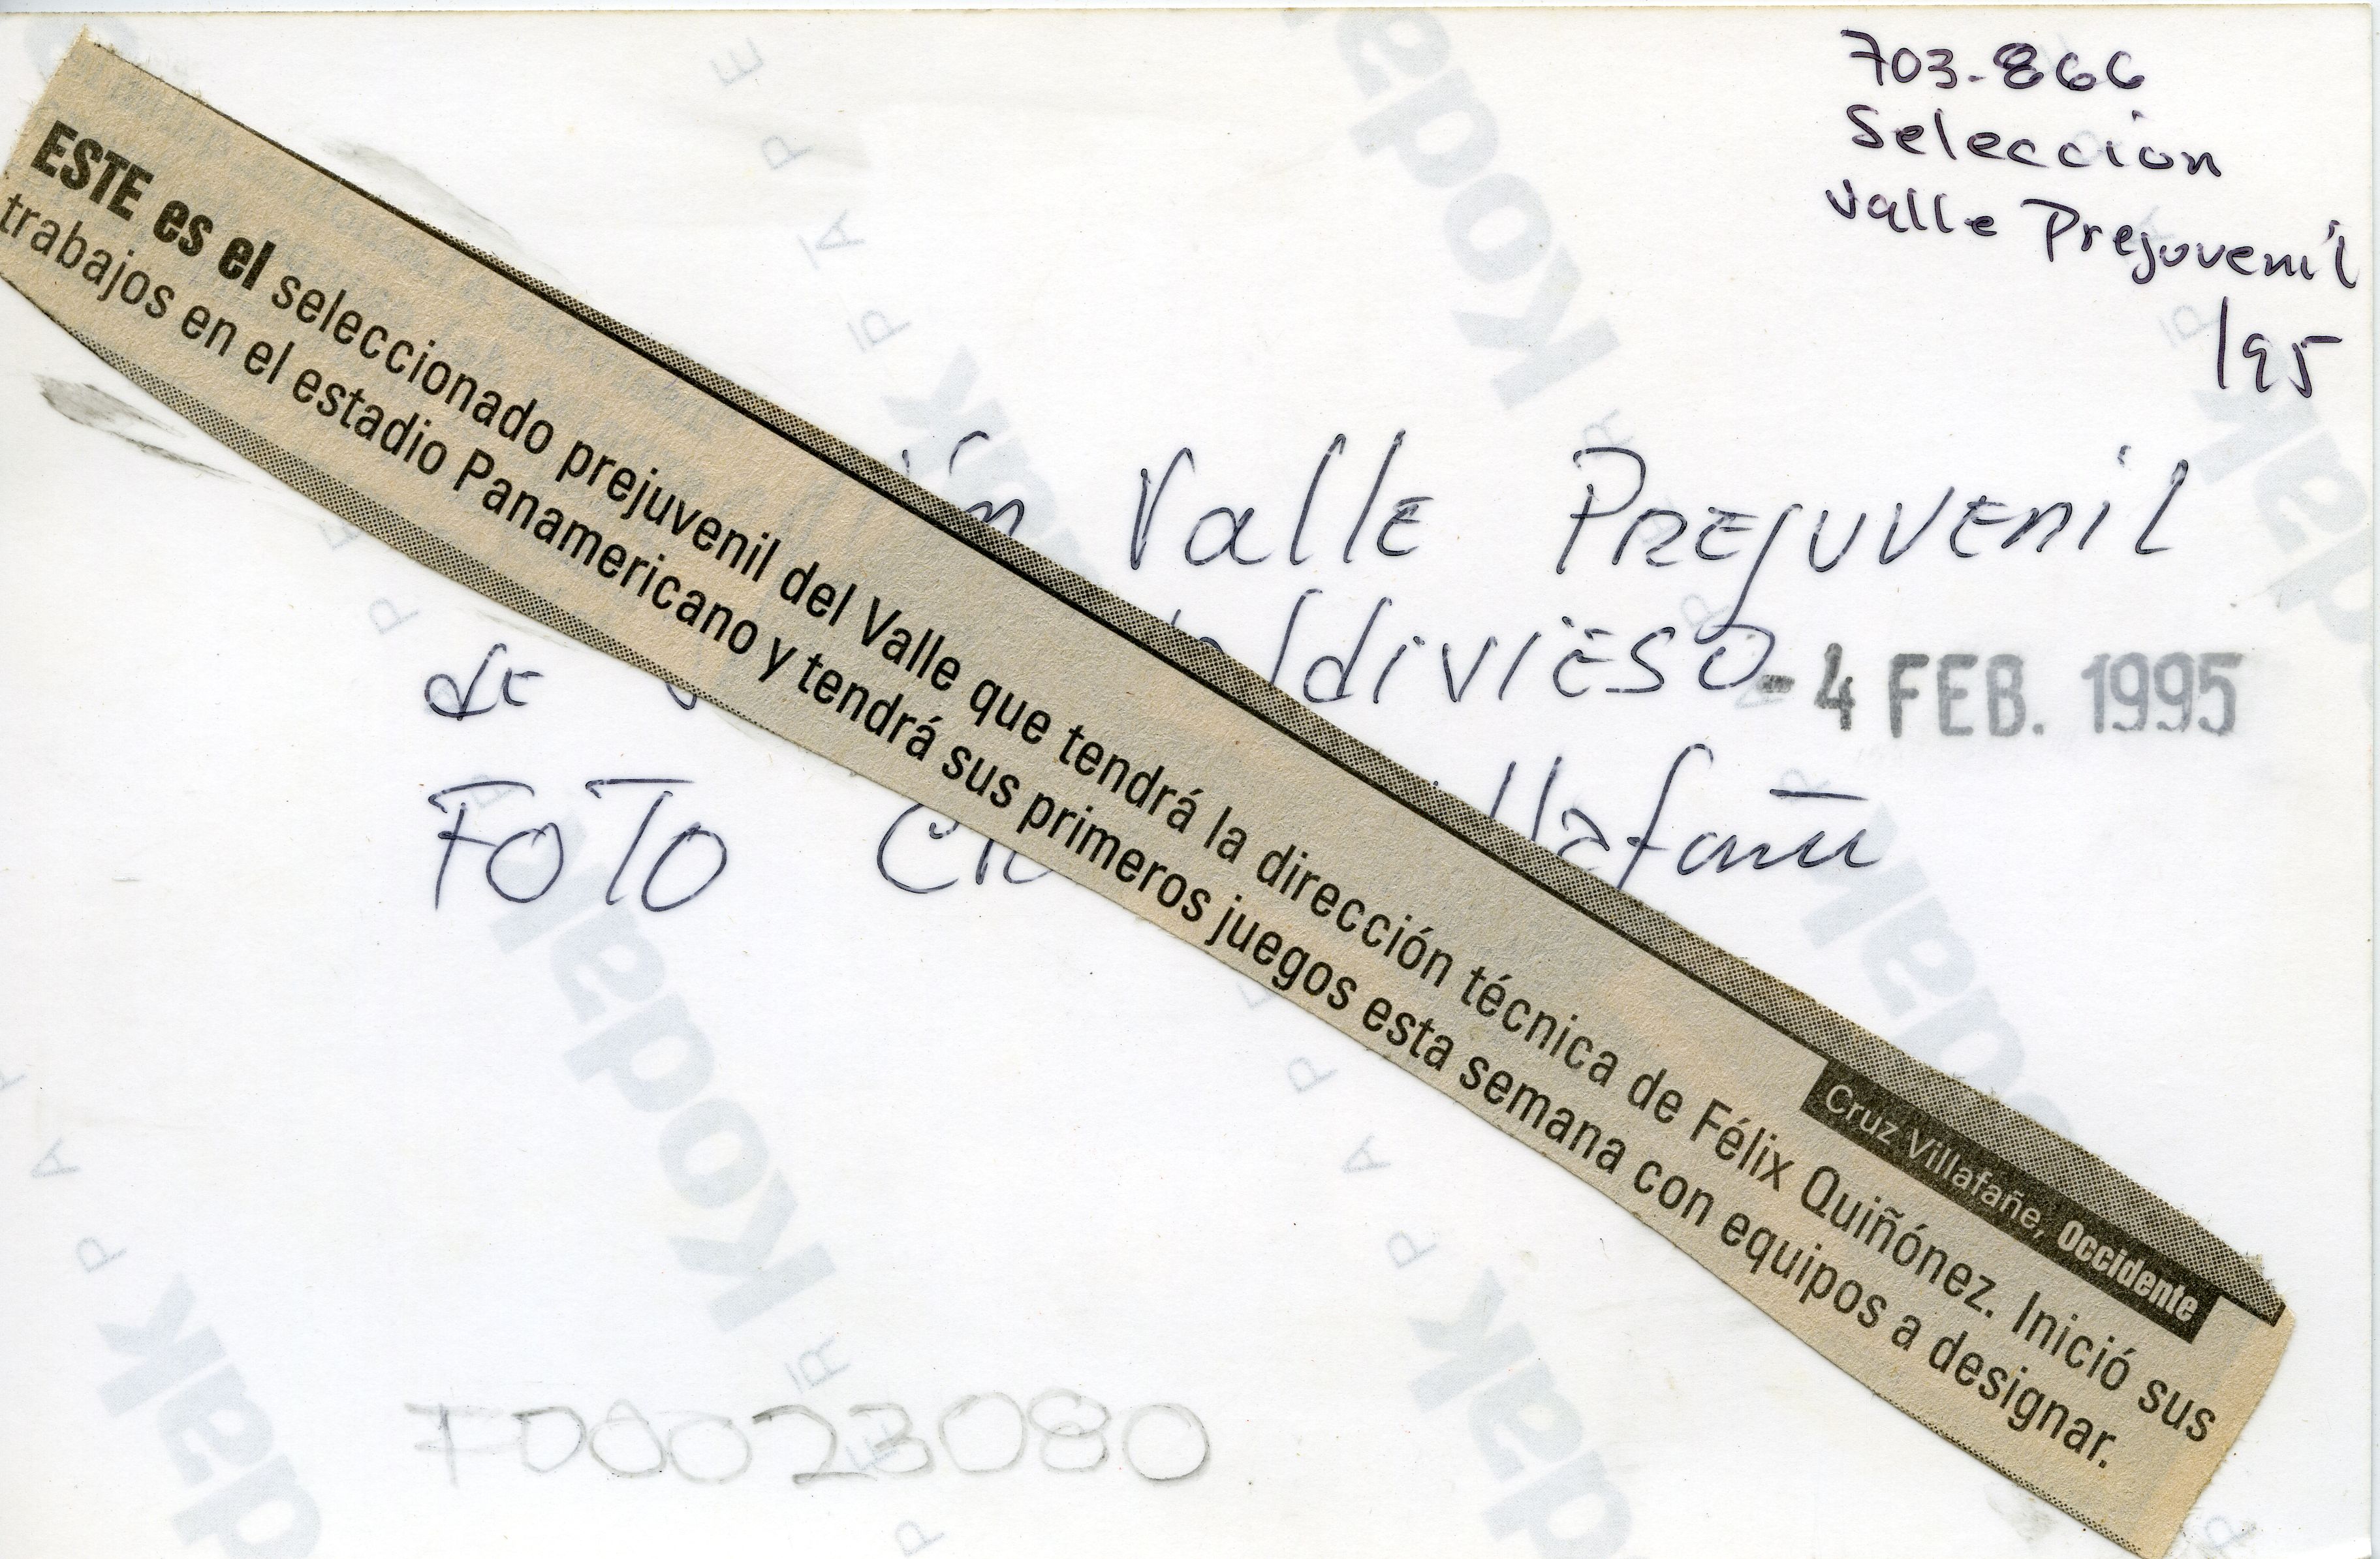 703-866
Seleccion
Valle Prejuvenil
/95
Valle PREJUVENIL
de
- 4 FEB. 1995
FOTO
Cruz Villafañe, Occidente
ESTE es el seleccionado prejuvenil del Valle que tendrá la dirección técnica de Félix Quiñónez. Inició sus
trabajos en el estadio Panamericano y tendrá sus primeros juegos esta semana con equipos a designar.
F00023080
Kodak
Kodak